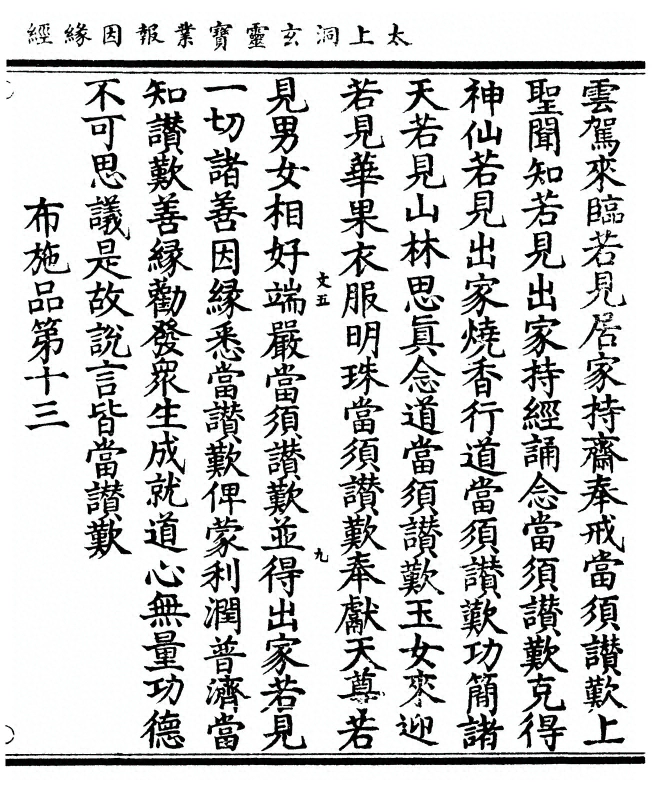 太上洞玄靈寶業報因緣經
雲駕來臨若見居家持齋奉戒當須讚歎上
聖聞知若見出家持經誦念當須讚歎克得
神仙若見出家燒香行道當須讚歎功簡諸
天若見山林思真念道當須讚歎玉女來迎
若見華果衣服明珠當須讚歎奉獻天尊若
文五 九
見男女相好端嚴當須讚歎並得出家若見
一切諸善因緣悉當讚歎俾蒙利潤普濟當
知讚歎善緣勸發眾生成就道心無量功德
不可思議是故說言皆當讚歎
布施品第十三